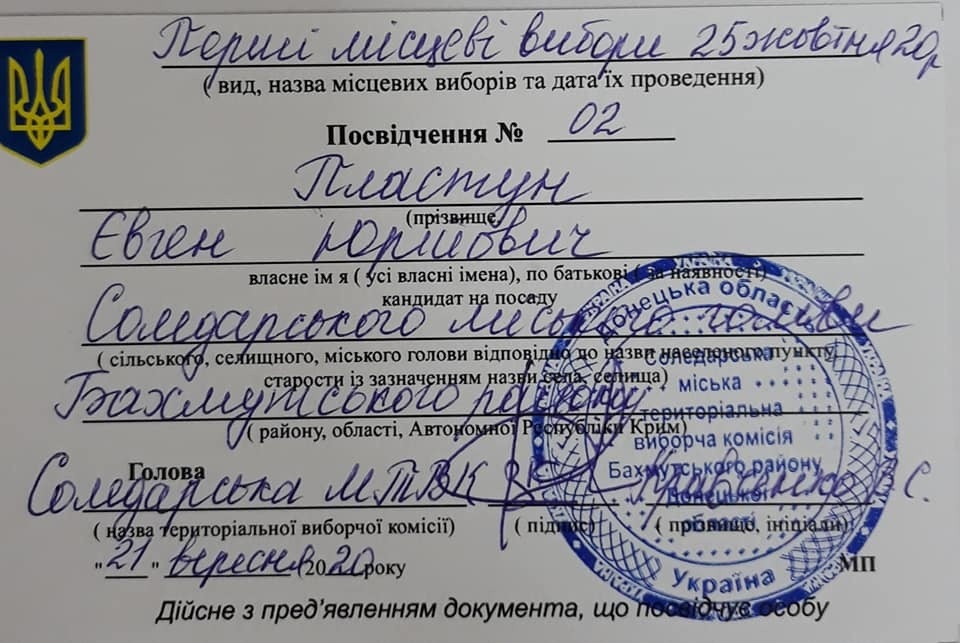 Перші місцеві вибори 25 жовтня 20р
( вид, назва місцевих виборів та дата їх проведення)
Посвідчення № 02
Пластун
(прізвище,
Євген Юрійович
власне ім я ( усі власні імена), по батькові ( за наявності)
кандидат на посаду
Соледарського міського голови
( сільського, селищного, міського голови відповідно до назви населеного пункту,
старости із зазначенням назви села, селища)
Бахмутського району
( району, області, Автономної Республіки Крим)
Голова
Соледарська МТВК Кравченко С.
( назва територіальної виборчої комісії) ( підпис) ( прізвище, ініціали)
"21" вересня 2020 року МП
Дійсне з пред’явленням документа, що посвідчує особу
Донецька область
Соледарська
міська
територіальна
виборча комісія
Бахмутського району
Донецької
області
Україна